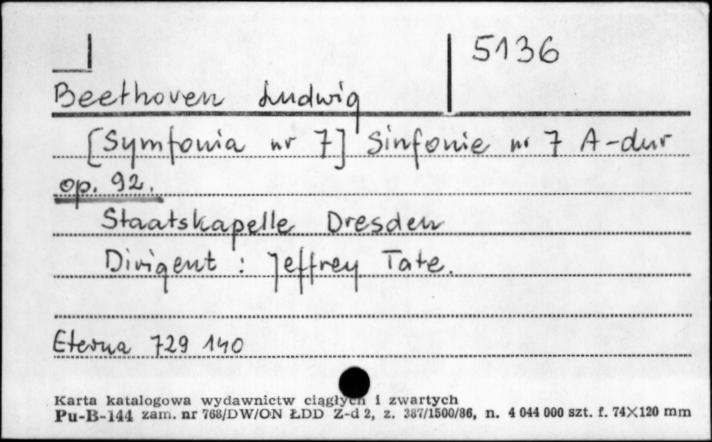 5136
Beethoven Ludwig
[Symfonia nr 7] Sinfonie nr 7 A-dur
op. 92.
Staatskapelle Dresden
Dirigent : Jeffrey Tate.
Eterna 729 140
Karta katalogowa wydawnictw ciągłych i zwartych
Pu-B-144 zam. nr 768/DW/ON ŁDD Z-d 2, z. 387/1500/86, n. 4 044 000 szt. f. 74×120 mm